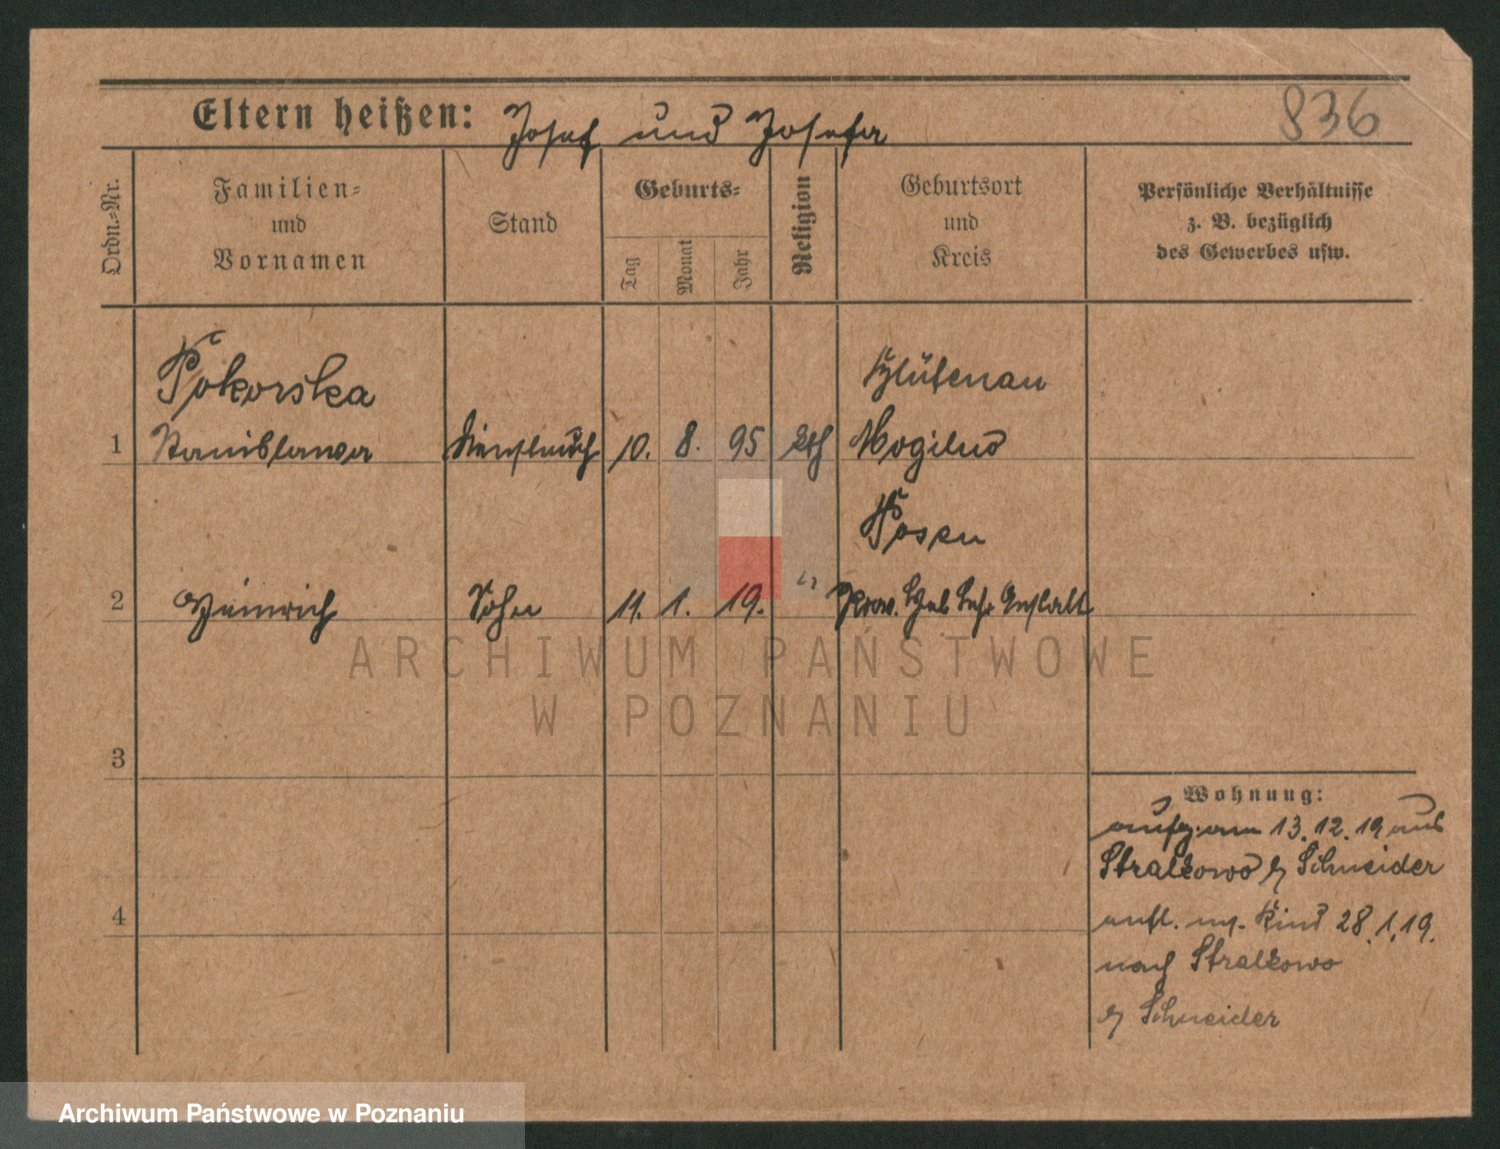 836
Eltern heißen: Josef und Josefa
Ordn.-Nr.
Familien-
und
Vornamen
Stand
Geburts-
Tag
Monat
Jahr
Religion
Geburtsort
und
Kreis
Persönliche Verhältnisse
z. B. bezüglich
des Gewerbes usw.
Pokorska
1 Stanislawa 10. 8. 95 kth Mogilno
Posen
2 Heinrich Sohn 11. 1. 19. " Prov. Heb Lehr Anstalt
3
4
Wohnung:
am 13.12.19 aus
Stralkowo b/ Schneider
entl. m. Kind 28.1.19.
nach Stralkowo
b/ Schneider
ARCHIWUM PAŃSTWOWE
W POZNANIU
Archiwum Państwowe w Poznaniu